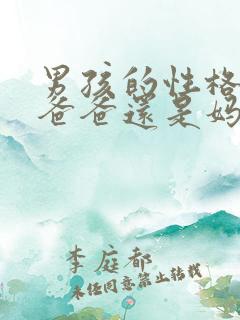 男孩的性格
爸爸還是妈
李庭都
未经同意禁止转载